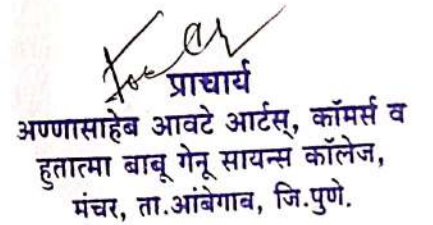 प्राचार्य
अण्णासाहेब आवटे आर्टस्, कॉमर्स व
हुतात्मा बाबू गेनू सायन्स कॉलेज,
मंचर, ता.आंबेगाव, जि.पुणे.